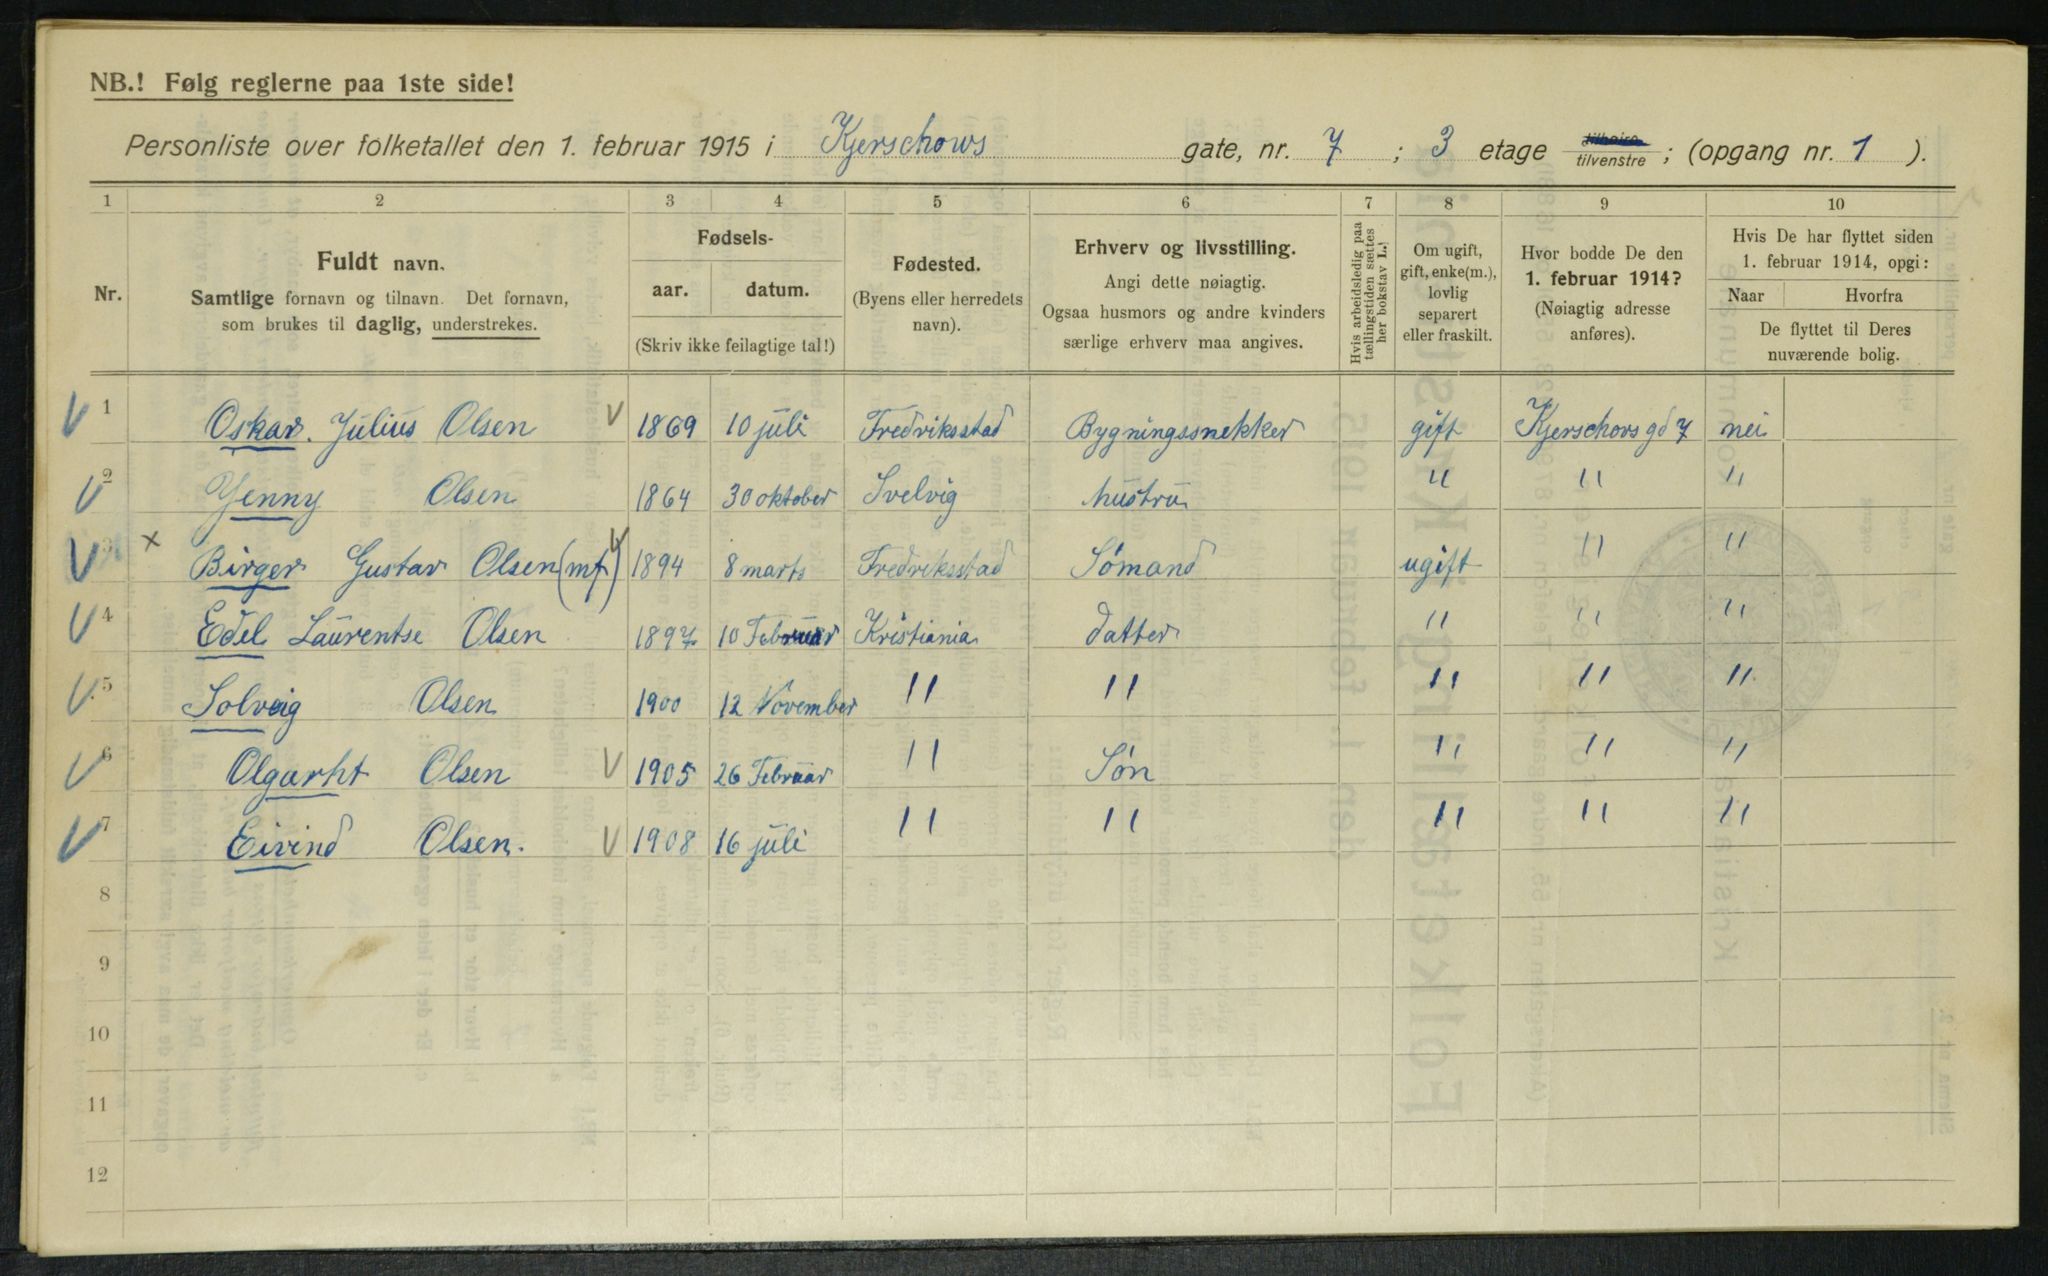 NB.! Følg reglerne paa 1ste side!
Personliste over folketallet den 1. februar 1915 i Kjerschows gate, nr. 7 ; 3 etage tilhøire tilvenstre ; (opgang nr. 1 ).
1 2 3 4 5 6 7 8 9 10
Nr.
Fuldt navn.
Samtlige fornavn og tilnavn. Det fornavn,
som brukes til daglig, understrekes.
Fødsels-
aar. datum.
(Skriv ikke feilagtige tal!)
Fødested.
(Byens eller herredets
navn).
Erhverv og livsstilling.
Angi dette nøiagtig.
Ogsaa husmors og andre kvinders
særlige erhverv maa angives.
Hvis arbeidsledig paa
tællingstiden sættes
her bokstav L.!
Om ugift,
gift, enke(m.),
lovlig
separert
eller fraskilt.
Hvor bodde De den
1. februar 1914?
(Nøiagtig adresse
anføres).
Hvis De har flyttet siden
1. februar 1914, opgi:
Naar Hvorfra
De flyttet til Deres
nuværende bolig.
1 Oskar. Julius Olsen 1869 10 juli Fredriksstad Bygningssnekker gift Kjerschovs gd 7 nei
2 Yenny Olsen 1864 30 oktober Svelvig hustru " " "
3 x Birger Gustav Olsen (mf) 1894 8 marts Fredriksstad Sømand ugift " "
4 Edel Laurentse Olsen 1897 10 Februar Kristiania datter " " "
5 Solveig Olsen 1900 12 November " " " " "
6 Olgarht Olsen 1905 26 Februar " Søn " " "
7 Eivind Olsen. 1908 16 juli " " " " "
8
9
10
11
12